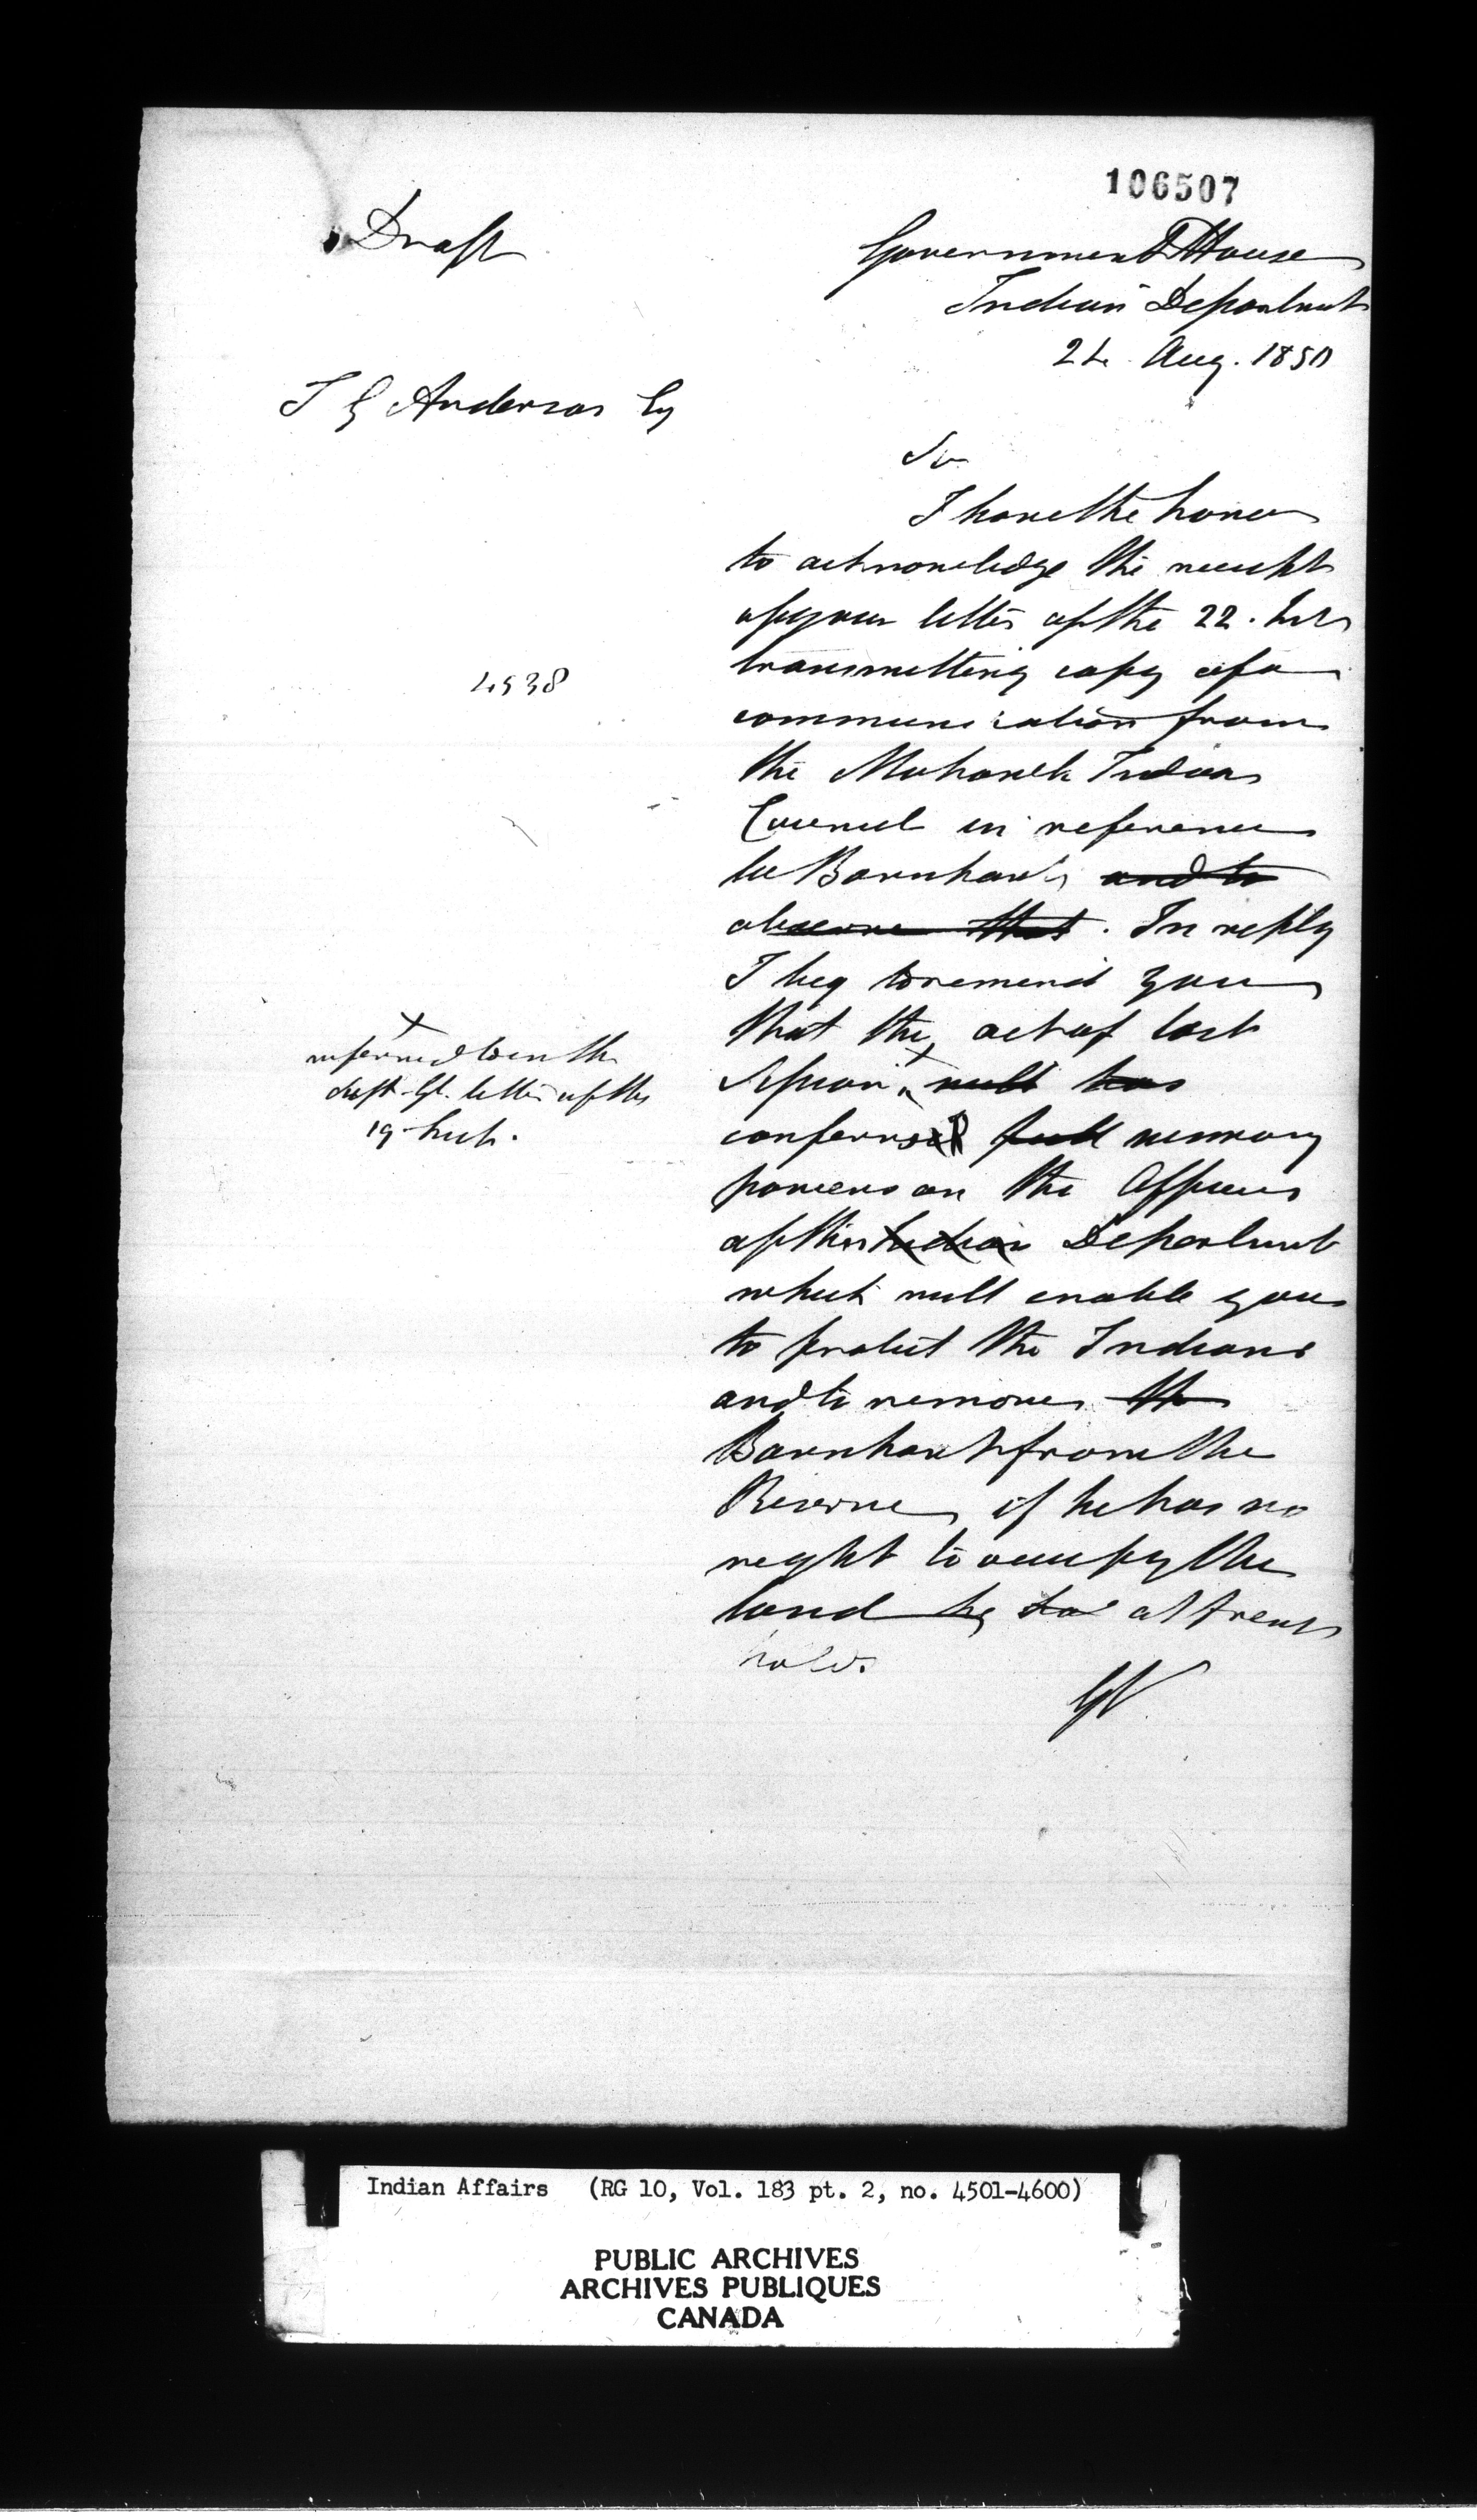 106507
Draft
Government House
Indian Department
24 Aug. 1850
T G Anderson Esq
Sir
I have the honor
to acknowledge the receipt
of your letter of the 22. Inst
transmitting copy of a
4538
communication from
the Mohawk Indian
Council in reference
to Barnhart, and to
observe that. In reply
I beg to remind you
that the act of last
x
referred to in the
Supt. Gl. letter of the
19 Inst.
Session x will has
conferred full necessary
powers on the Officers
of this Indian Department
which will enable you
to protect the Indians
and to remove the
Barnhart from the
Reserve, if he has no
right to occupy the
land he has at present
holds.
Indian Affairs (RG 10, Vol. 183 pt. 2, no. 4501-4600)
PUBLIC ARCHIVES
ARCHIVES PUBLIQUES
CANADA